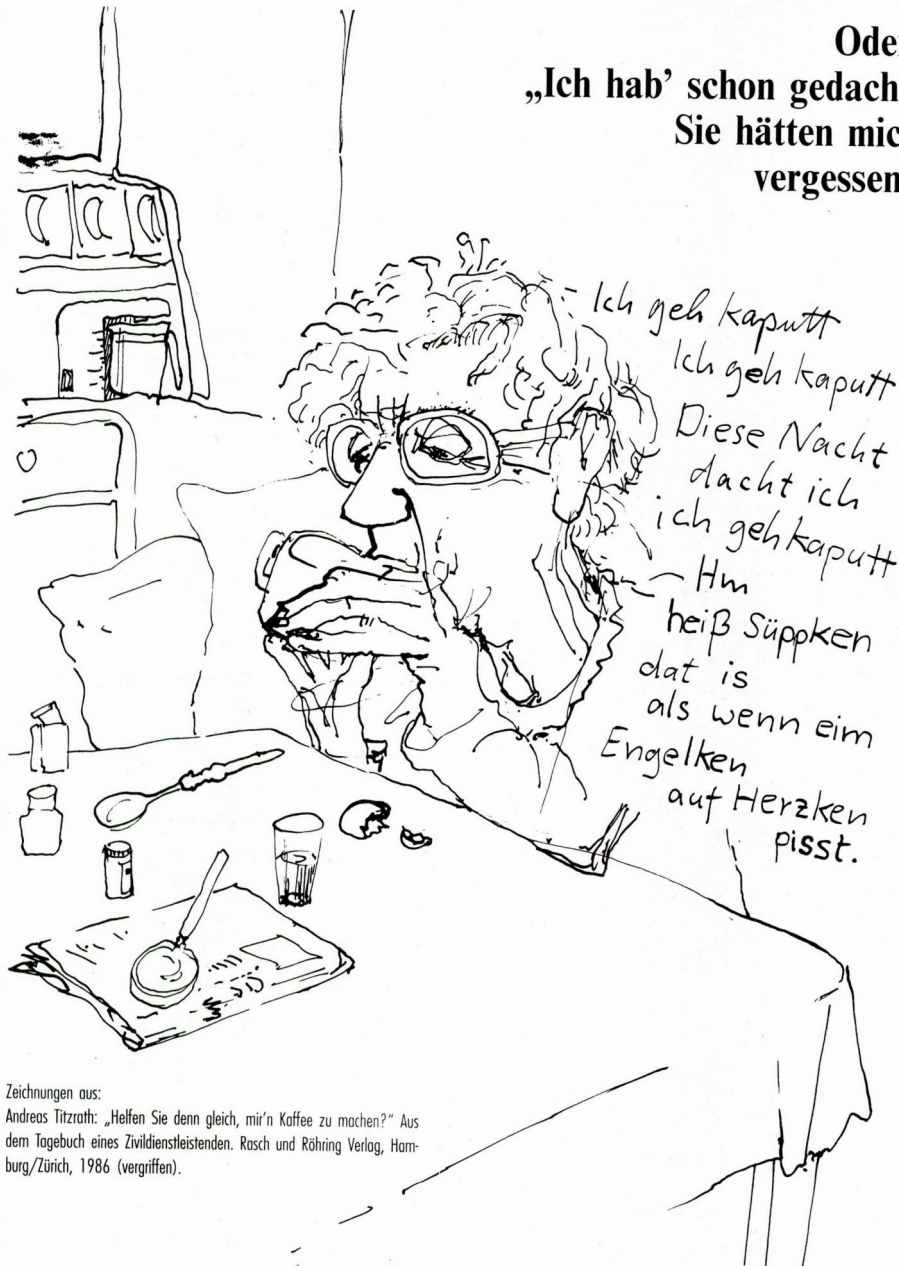 Oder
„Ich hab’ schon gedach
Sie hätten mic
vergessen
Ich geh kaputt
Ich geh kaputt
Diese Nacht
dacht ich
ich geh kaputt
Hm
heiß Süppken
dat is
als wenn eim
Engelken
auf Herzken
pisst.
Zeichnungen aus:
Andreas Titzrath: „Helfen Sie denn gleich, mir’n Kaffee zu machen?“ Aus
dem Tagebuch eines Zivildienstleistenden. Rasch und Röhring Verlag, Ham-
burg/Zürich, 1986 (vergriffen).